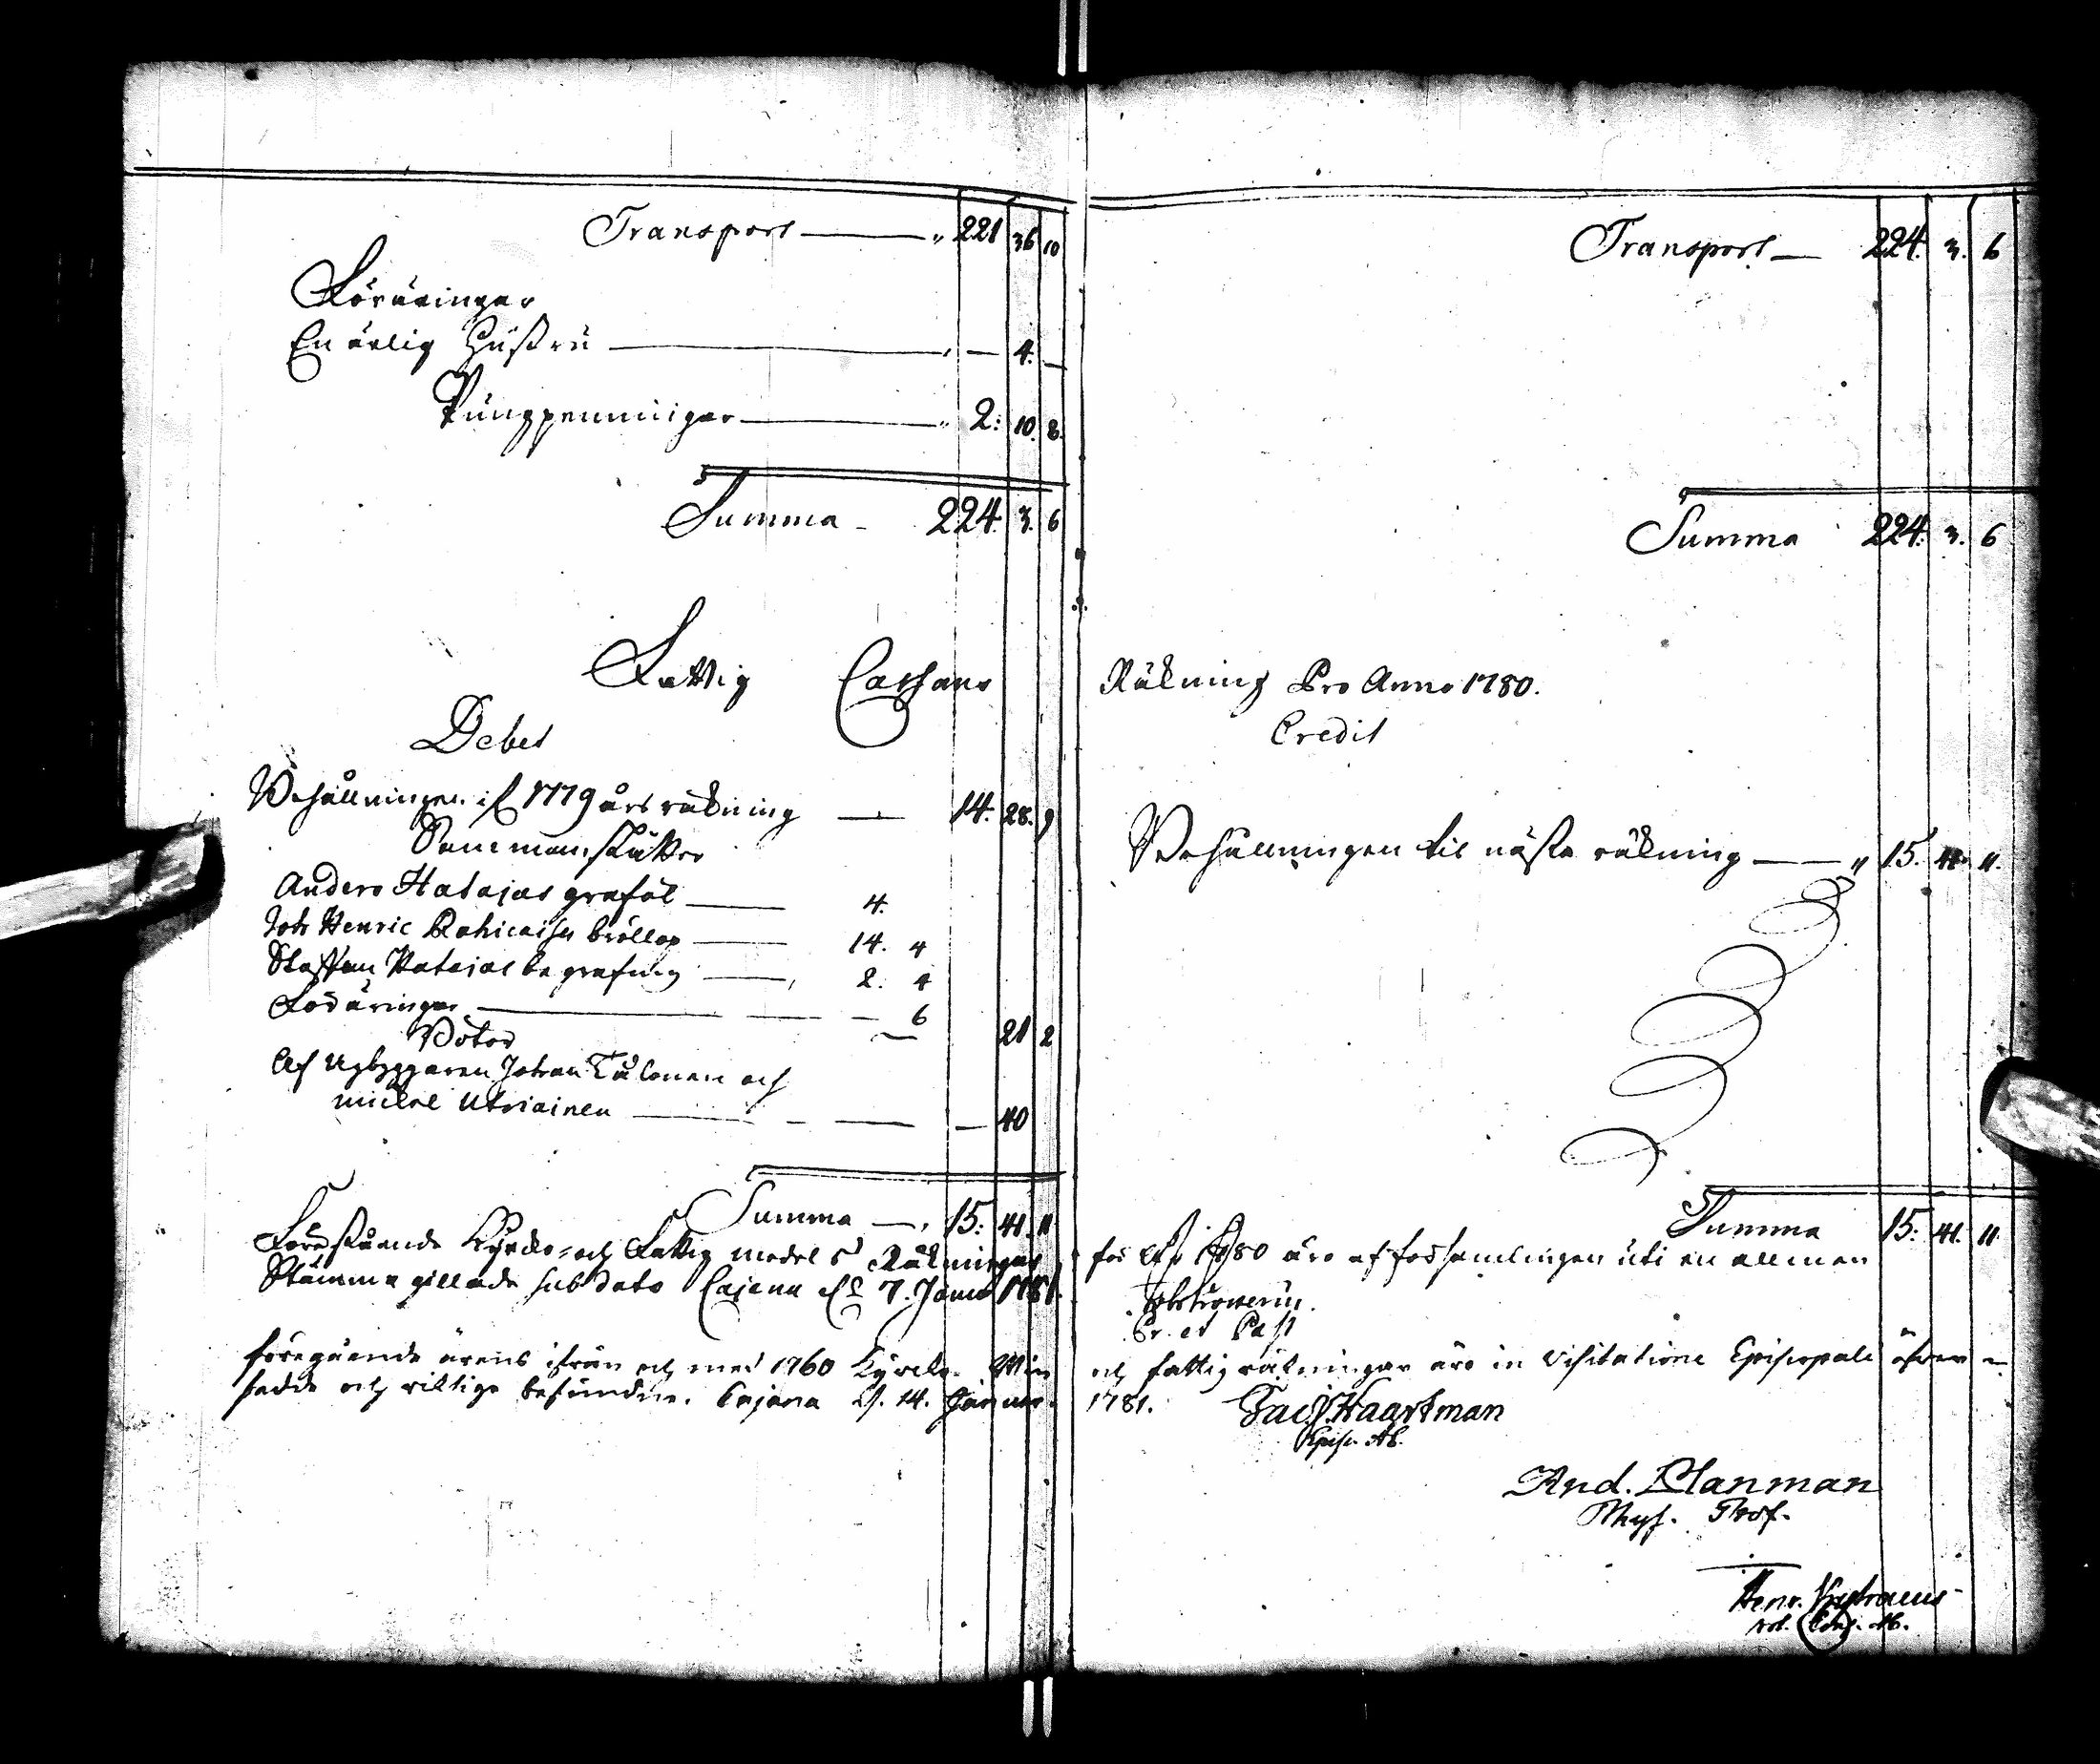 Transport — „ 221 36 10
Föräringar
En ärlig Hustru — „ — 4. —
Pungpenningar — „ 2: 10. 8.
Summa - 224. 3. 6
Fattig Cassans
Debet
Behållningen if 1779 års räkning — 14. 28. 9
Sammanskåtter
Anders Hatajas graföl — 4.
Joh Henric Rahicaisen bröllop — 14. 4
Staffan Hatajas begrafning — 2. 4
Föräringar — 6
21 2
Böter
Af Nybyggaren Johan Tulonen och
Mickel Utriainen — 40
Summa — 15: 41. 11
Förestående Kyrko- och Fattig medels Räkningar
Stämma gillade sub dato Cajana d. 7. Janua 1781.
föregående årens ifrån och med 1760 Kyrko-
sedde och riktige befundne. Cajana d. 14. Januar.
Transport — 224. 3. 6
Summa 224. 3. 6
Räkning Pro Anno 1780.
Credit
Behållningen til nästa räkning — „ 15. 41. 11.
Summa 15: 41. 11.
för 1780 äro af församlingen uti en allmen
Pr. et Past
och fattig räkningar äro in Visitatione Episcopali öfwer
1781. Jac. Haartman
Episc. Ab.
And. Planman
Phys. Prof.
Henr.
Not. Cons. Ab.